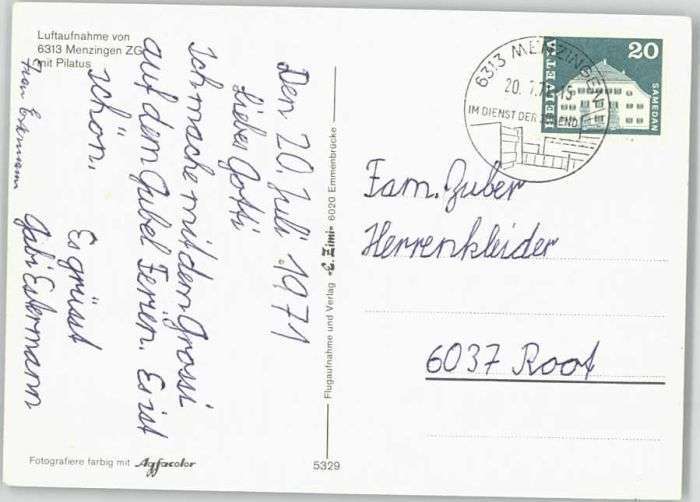 Luftaufnahme von
6313 Menzingen ZG
mit Pilatus
Den 20. Juli 1971
Liebes Gotti
Ich mache mit dem Grossi
auf dem Gubel Ferien. Es ist
schön.
Es grüsst
Gabi Estermann
Frau Estermann
Fotografiere farbig mit Agfacolor
Flugaufnahme und Verlag «E. Zimi» 6020 Emmenbrücke
5329
6313 MENZINGEN
IM DIENST DER JUGEND
HELVETIA
20
SAMEDAN
Fam. Huber
Herrenkleider
6037 Root